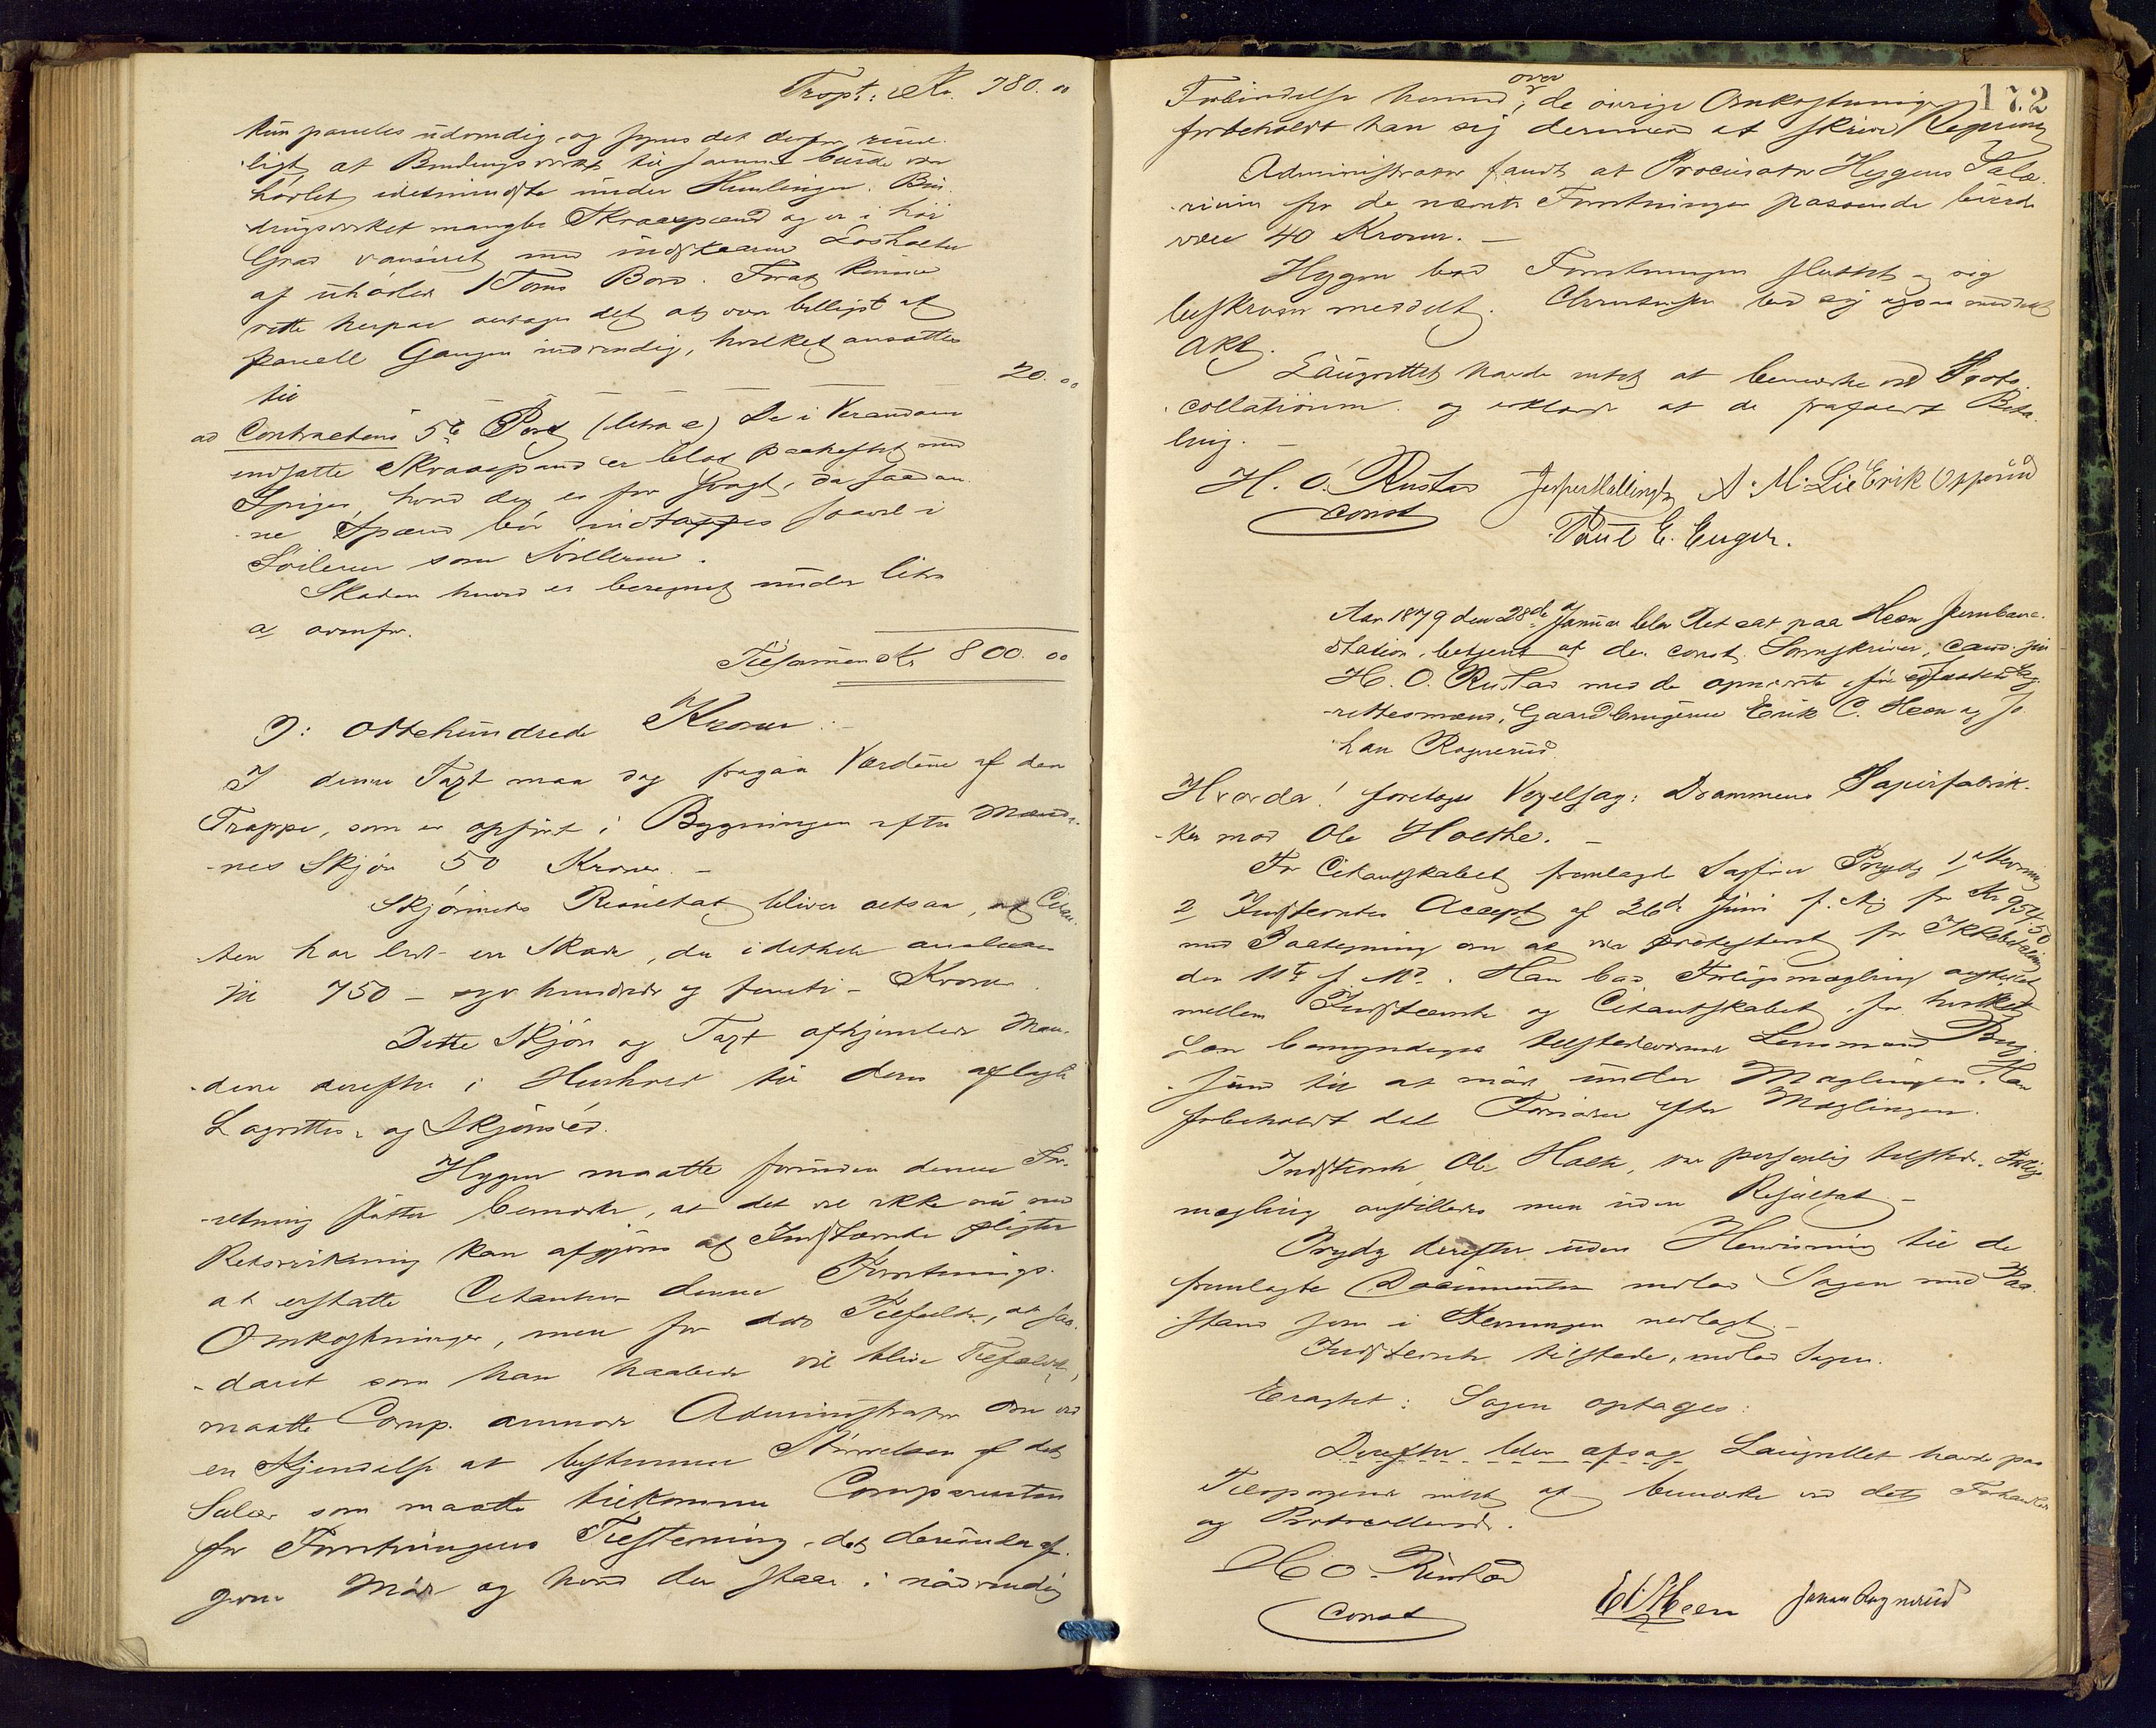 Tropt: Kr. 780.00
kun paneles udvendig, og synes det derfor rime-
ligt, at Bindingsværket til samme burde være
høvlet, idetmindste under Hemlinger. Bin-
dingsværket mangler Skraaspænd og er i høi
Grad vansiret med indskaarne Losholter
af uhøvlede 1 Toms Bord. Forat kunne
rette herpaa antages det at være billigst at
panele Gangen indvendig, hvilket ansættes
til 20.00
ad Contractens 5te Post (litra e) De i Verandaen
indsatte Skraaspænd er blot paaheftet med
Spiger hvad der er for svagt, da saadan-
ne Spænd bør indtappes saavel i
Søilerne som Svillerne.
Skaden herved er beregnet under litra
a ovenfor.
Tilsammen Kr. 800.00
ɔ: ottehundrede Kroner.
I denne Taxt maa dog fragaa Værdien af den
Trappe, som er opført i Bygningen efter Mænde-
nes Skjøn 50 Kroner. –
Skjønnets Resultat bliver altsaa, at Citan-
ten har lidt en Skade, der i det hele anslaaes
til 750 – syv hundrede og femti – Kroner.
Dette Skjøn og Taxt afhjemlede Mæn-
dene derefter i Henhold til deres aflagte
Lagrettes- og Skjønsed.
Hygen maatte forinden denne For-
retning slutter bemærke, at det vel ikke nu med
Retsvirkning kan afgjøres at Indstævnte pligter
at erstatte Citanten denne Forretnings
Omkostninger, men for det Tilfælde, at saa-
dant som han haaber vil blive Tilfældet,
maatte Comp. anmode Administrator om ved
en Kjendelse at bestemme Størrelsen af det
Salær som maatte tilkomme Comparenten
for Forretningens Tilstevning, det derunder af-
givne Møde og hvad der staar i nødvendig
172
Forbindelse hermed; over de øvrige Omkostninger
forbeholdt han sig derimod at skrive Regning
Administrator fandt at Procurator Hygens Sala-
rium for de nævnte Forretninger passende burde
være 40 Kroner. –
Hygen bad Forretningen sluttet og sig
beskreven meddelt. Christensen bad sig ogsaa meddelt
Akt.
Laugrettet havde intet at bemærke ved Proto-
collationen og erklærte at de frafaldt Beta-
ling. –
H. O. Rustad A. M. Lie Erik Opperud
const
Paul E. Enger.
Aar 1879 den 28de Januar blev Ret sat paa Heen Jernbane-
station, betjent af den const. Sorenskriver, cand. jur
H. O. Rustad med de opnævnte, før edfæstede Lag-
rettesmænd, Gaardbrugerne Erik C. Heen og Jo-
han Ragnerud.
Hvorda! foretoges Vexelsag: Drammens Papirfabrik-
ker mod Ole Holthe. –
For Citantskabet fremlagde Sagfører Prydz 1, Stevning
2 Indstevntes Accept af 26de Juni f. A. for Kr 954.50
med Paategning om at være protesteret for Ikkebetaling
den 11te f. Md. Han bad Forligsmægling anstillet
mellem Indstævnte og Citantskabet, for hvilket
han bemyndigede tilstedeværende Lensmand
til at møde under Mæglingen. Han
forbeholdt det Fornødne efter Mæglingen.
Indstevnte, Ole Holthe, var personlig tilstede. Forligs-
mægling anstilledes men uden Resultat –
Prydz derefter under Henvisning til de
fremlagte Documenter indlod Sagen med Paa-
stand som i Stevningen nedlagt. –
Indstevnte tilstede, indlod Sagen.
Eragtet: Sagen optages:
Derefter blev afsagt Laugrettet havde paa
Tilspørgende intet at bemærke ved det Forhandlede
og Protocollerede.
H O. Rustad
const
E C Heen Johan Ragnerud